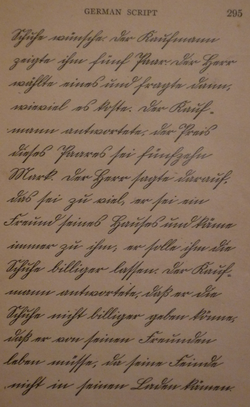 GERMAN SCRIPT 295
Schuhe wünsche. Der Kaufmann
zeigte ihm fünf Paar. Der Herr
wählte eines und fragte dann,
wieviel es koste. Der Kauf-
mann antwortete, der Preis
dieses Paares sei fünfzehn
Mark. Der Herr sagte darauf,
das sei zu viel, er sei ein
Freund seines Hauses und käme
immer zu ihm, er solle ihm die
Schuhe billiger lassen. Der Kauf-
mann antwortete, daß er die
Schuhe nicht billiger geben könne,
daß er von seinen Freunden
leben müsse, da seine Feinde
nicht in seinen Laden kämen.